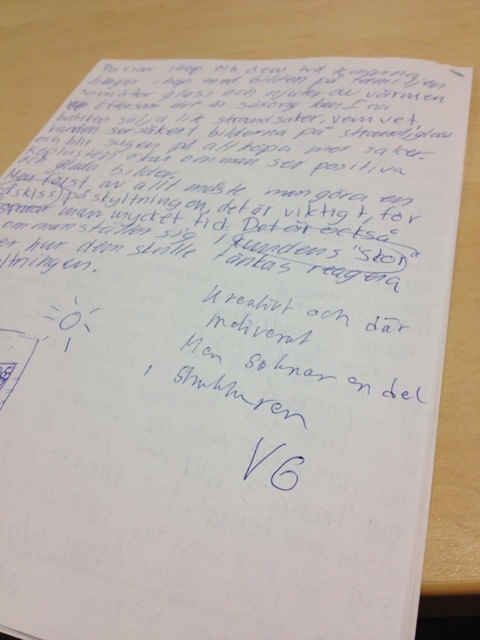 Passar ihop och dem två
hänger ihop med bilden på familjen
som äter glass och njuter av värmen
Eftersom det är säsong kan Ica
sälja lite strandsaker, vem vet,
kunden ser säkert bilderna på strand/glass
och blir sugen på att köpa mer saker.
Köplusten ökar om man ser positiva
och glada bilder.
Men först av allt måste man göra en
skiss på skyltningen, det är viktigt, för
sparar man mycket tid. Det är också
om man ställer sig i kundens "skor"
er hur dem skulle tänkas reagera
ltningen.
Kreativt och där
motiverat
Men saknar en del
i strukturen
VG